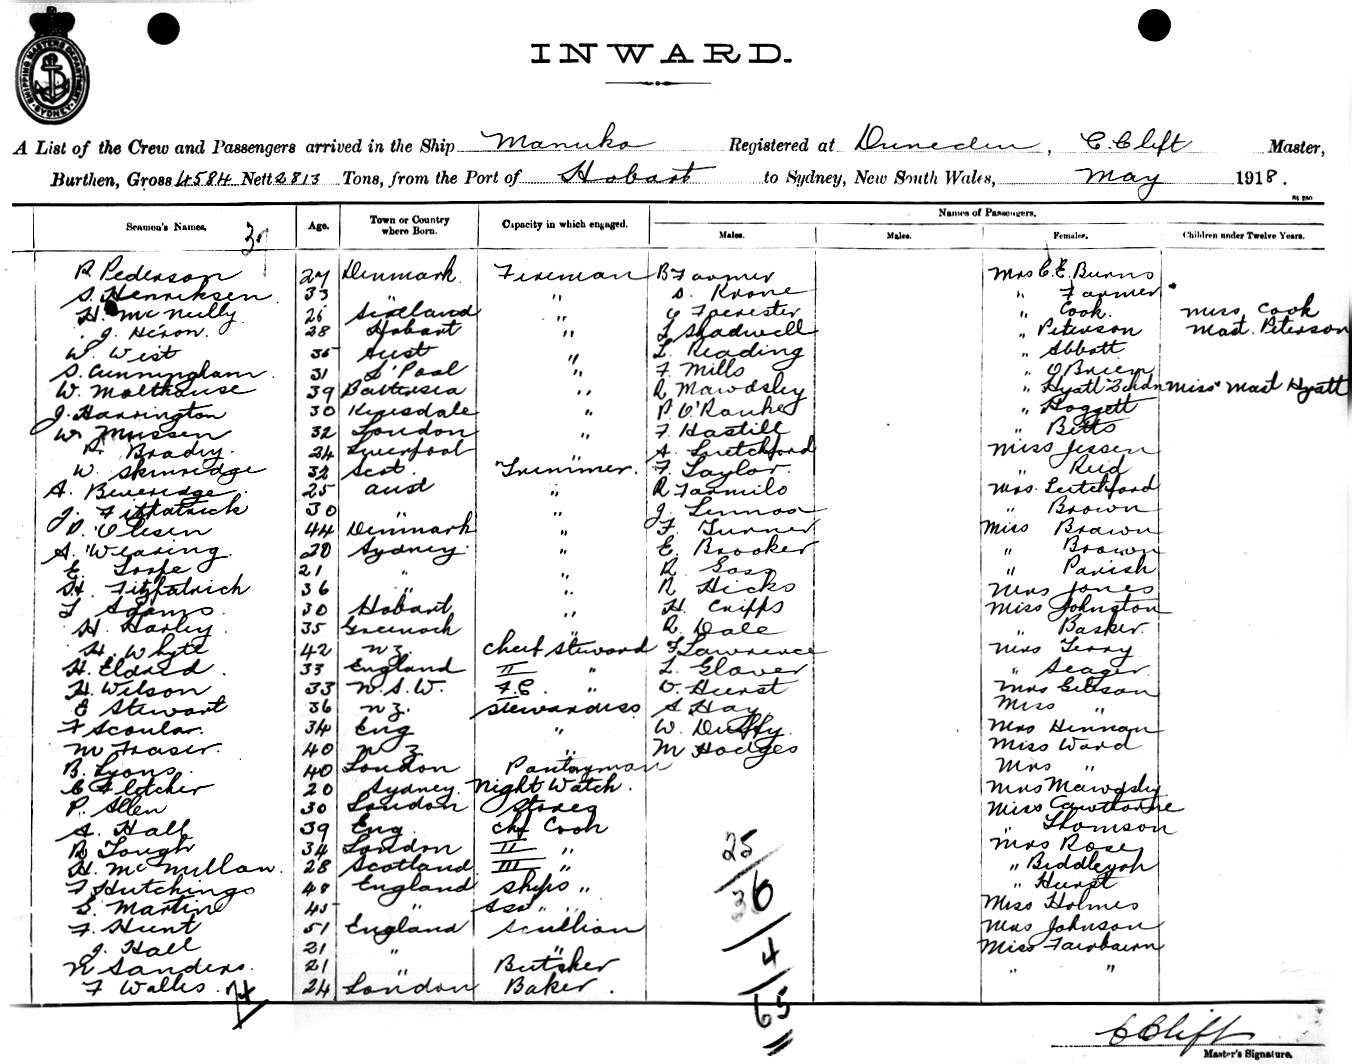 SHIPPING MASTERS DEPARTMENT SYDNEY
INWARD.
A List of the Crew and Passengers arrived in the Ship Manuka Registered at Duneden, C. Clift Master,
Burthen, Gross 4584 Nett 2813 Tons, from the Port of Hobart to Sydney, New South Wales, May 1918.
Names of Passengers.
Seamen's Names. Age. Town or Country where Born. Capacity in which engaged. Males. Males. Females. Children under Twelve Years.
R Pederson 27 Denmark Fireman B Farmer Mrs C. E. Burns
S. Henriksen 33 " " S. Krone " Farmer
H. McNeilly 26 " C Forrester " Cook. Miss Cook
J. Heron. 28 Hobart " L Shadwell " Peterson Mast. Peterson
W. West 35 Aust " L. Reading " Abbott
S. Cunningham. 31 L'Pool " F. Mills " O'Brien
W. Malthouse 39 Battersea " R Mawdsley " Hyatt Miss Mast Hyatt
J. Harrington 30 Kinsdale " P O'Rourke " Hoggett
W. Mussen 32 London " F. Hastill " Betts
R. Brady. 24 Liverpool " A. Lutchford Miss Jessen
W. Skinridge 32 Scot. Trimmer. F. Taylor " Reid
A. Beveridge. 25 Aust " R Farmilo Mrs. Leitchford
J. Fitzpatrick 30 " " J. Lennox " Brown
P. Olesen 44 Denmark " F. Turner Miss Brown
A. Wearing. 20 Sydney. " E. Brooker " Brown
E 21 " " R. Goss " Parish
H. Fitzpatrick 36 " " R Hicks Mrs Jones
L Adams. 30 Hobart " H. Cripps Miss Johnston
H. Harley. 35 Greenock " R. Dale " Basker.
H. Whyte 42 N.Z. Chief Steward F Lawrence Mrs Terry
H. Eldred. 33 England II " L. Glover " Seager
H. Wilson 33 N.S.W. F.C. " O. Hurst Mrs Gibson
E Stewart 36 N.Z. Stewardess A Hay Miss "
F Scoular. 34 Eng " W. Duffy Mrs Hennan
M Fraser. 40 N Z " M Hodges Miss Ward
B. Lyons. 40 London Pantryman Mrs "
C Fletcher 20 Sydney. Night Watch. Mrs Mawdsly
P. Allen 30 London Stores Miss Cawthorne
A. Hall 39 Eng. Chf Cook " Thomson
R Tough 34 London II " Mrs Rose
H. McMillan. 28 Scotland III " " Biddleyoh
F Hutchings 48 England Ships " " Hurst
S. Martin 45 " Ass " " Miss Holmes
F. Hunt 51 England Scullian Mrs Johnson
J. Hall 21 " " Miss Fairbairn
R Sanders. 21 " Butcher " "
F Wallis. 24 London Baker.
25
36
4
65
C Clift
Master's Signature.